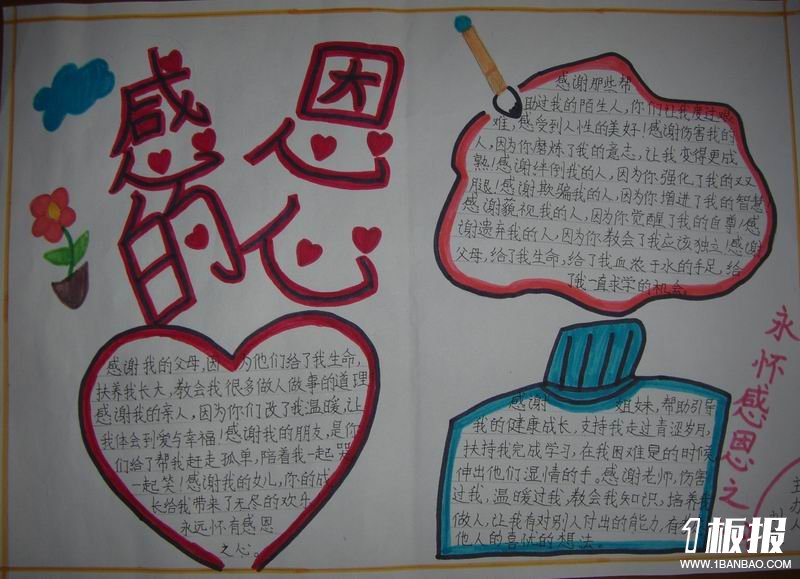 感恩
的心
感谢那些帮
助过我的陌生人,你们让我度过难
难,感受到人性的美好!感谢伤害我的
人,因为你磨炼了我的意志,让我变得更成
熟!感谢绊倒我的人,因为你强化了我的双
腿!感谢欺骗我的人,因为你增进了我的智慧
感谢藐视我的人,因为你觉醒了我的自尊!感
谢遗弃我的人,因为你教会了我应该独立!感谢
父母,给了我生命,给了我血浓于水的手足,给
了我一直求学的机会
感谢我的父母,因为他们给了我生命,
扶养我长大,教会我很多做人做事的道理
感谢我的亲人,因为你们改了我温暖,让
我体会到爱与幸福!感谢我的朋友,是你
们给了帮我赶走孤单,陪着我一起哭
一起笑!感谢我的女儿,你的成
长给我带来了无尽的欢乐
永远怀有感恩
之心。
感谢 姐妹,帮助引导
我的健康成长,支持我走过青涩岁月,
扶持我完成学习,在我困难是的时候
伸出他们湿情的手。感谢老师,伤害
过我,温暖过我,教会我知识,培养我
做人,让我有对别人付出的能力,有
他人的喜忧的想法。
永怀感恩之
1板报
WWW.1BANBAO.COM